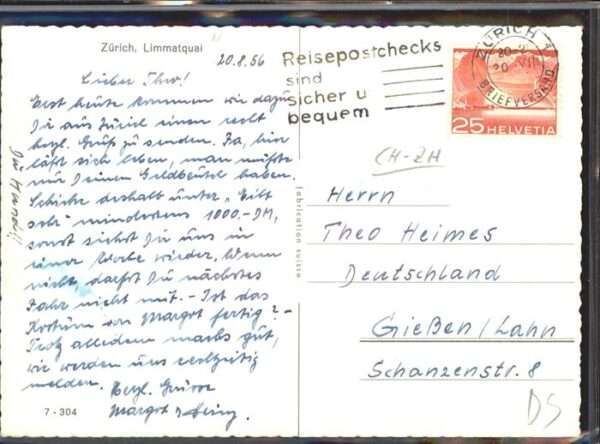 Zürich, Limmatquai
20.8.56
Lieber Theo!
Erst heute kommen wir dazu
Dir aus Zürich einen recht
herzl. Gruß zu senden. Ja, hier
läßt sich leben, man müßte
nur Deinen Geldbeutel haben.
Schicke deshalb unter "Eilt
sehr" mindestens 1000.-DM,
sonst siehst Du uns in
einer Woche wieder. Wenn
nicht, darfst Du nächstes
Jahr nicht mit. - Ist das
Kostüm von Margot fertig? -
Trotz alledem machs gut,
wir werden uns rechtzeitig
melden.
Herzl. Grüsse
Margot
7-304
Fabrication suisse
Reisepostchecks
sind
sicher u
bequem
ZÜRICH 1
20
BRIEFVERSAND
25 HELVETIA
CH-ZH
Herrn
Theo Heimes
Deutschland
Gießen/Lahn
Schanzenstr. 8
DS